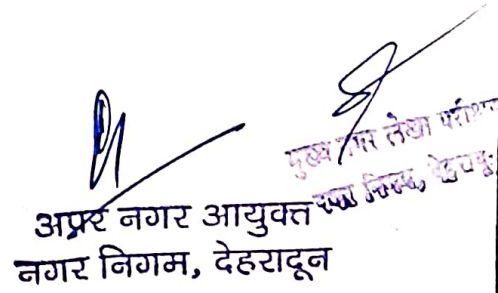 मुख्य नगर लेखा परीक्षक
नगर निगम, देहरादून
अपर नगर आयुक्त
नगर निगम, देहरादून